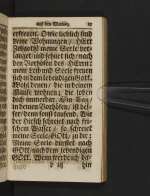 auf den Montag.
erfreuet. O wie lieblich sind
deine Wohnungen, HErr
Zebaoth! meine Seele ver-
langet und sehnet sich, nach
den Vorhöfen des HErrn:
mein Leib und Seele freuen
sich in dem lebendigen GOtt.
Wohl denen, die in deinem
Hause wohnen, die loben
dich immerdar. Ein Tag
in deinen Vorhöfen, ist bes-
ser, denn sonst tausend. Wie
der Hirsch schreiet nach fri-
schem Wasser, so schreiet
meine Seele, GOtt, zu dir:
Meine Seele dürstet nach
GOtt, nach dem lebendigen
GOTT. Wenn werd ich da-
hin